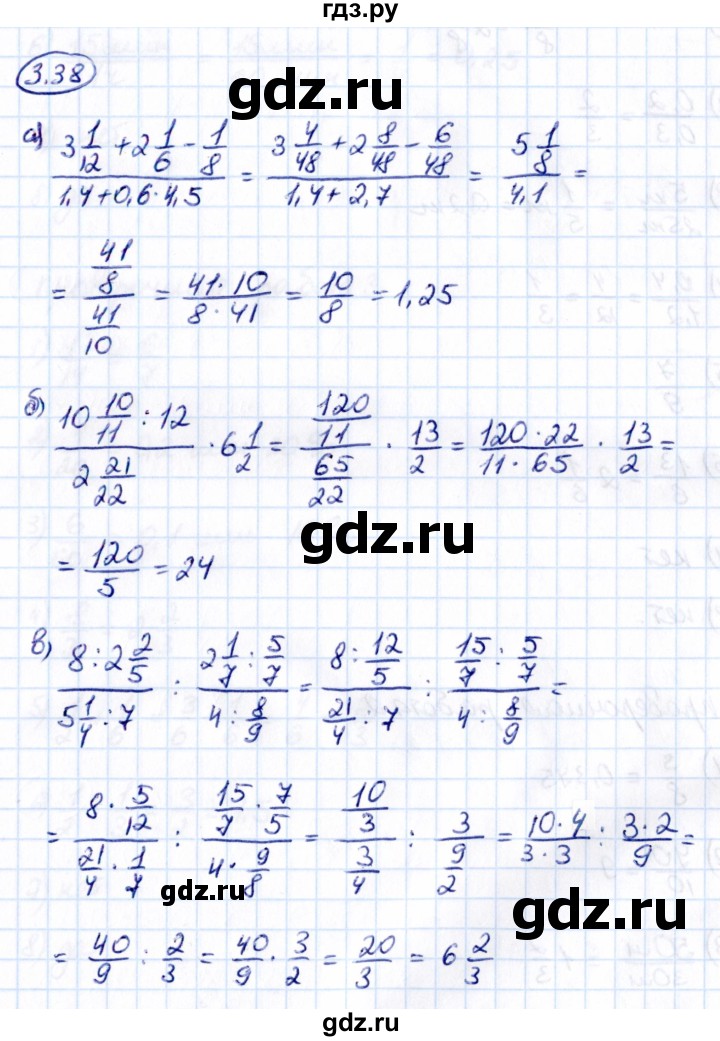 гдз.ру
3.38
gdz.ru
а) (3 1/12 + 2 1/6 - 1/8)/(1,4+0,6·4,5) = (3 4/48 + 2 8/48 - 6/48)/(1,4+2,7) = (5 1/8)/(4,1) =
= (41/8)/(41/10) = (41·10)/(8·41) = 10/8 = 1,25
gdz.ru
б) (10 10/11 : 12)/(2 21/22) · 6 1/2 = (120/11)/(65/22) · 13/2 = (120·22)/(11·65) · 13/2 =
gdz.ru
= 120/5 = 24
gdz.ru
в) (8 : 2 2/5)/(5 1/4 : 7) : (2 1/7 : 5/7)/(4 : 8/9) = (8 : 12/5)/(21/4 : 7) : (15/7 : 5/7)/(4 : 8/9) =
= (8 · 5/12)/(21/4 · 1/7) : (15/7 · 7/5)/(4 · 9/8) = (10/3)/(3/4) : 3/(9/2) = (10·4)/(3·3) : (3·2)/9 =
gdz.ru
gdz.ru
= 40/9 : 2/3 = 40/9 · 3/2 = 20/3 = 6 2/3
gdz.ru